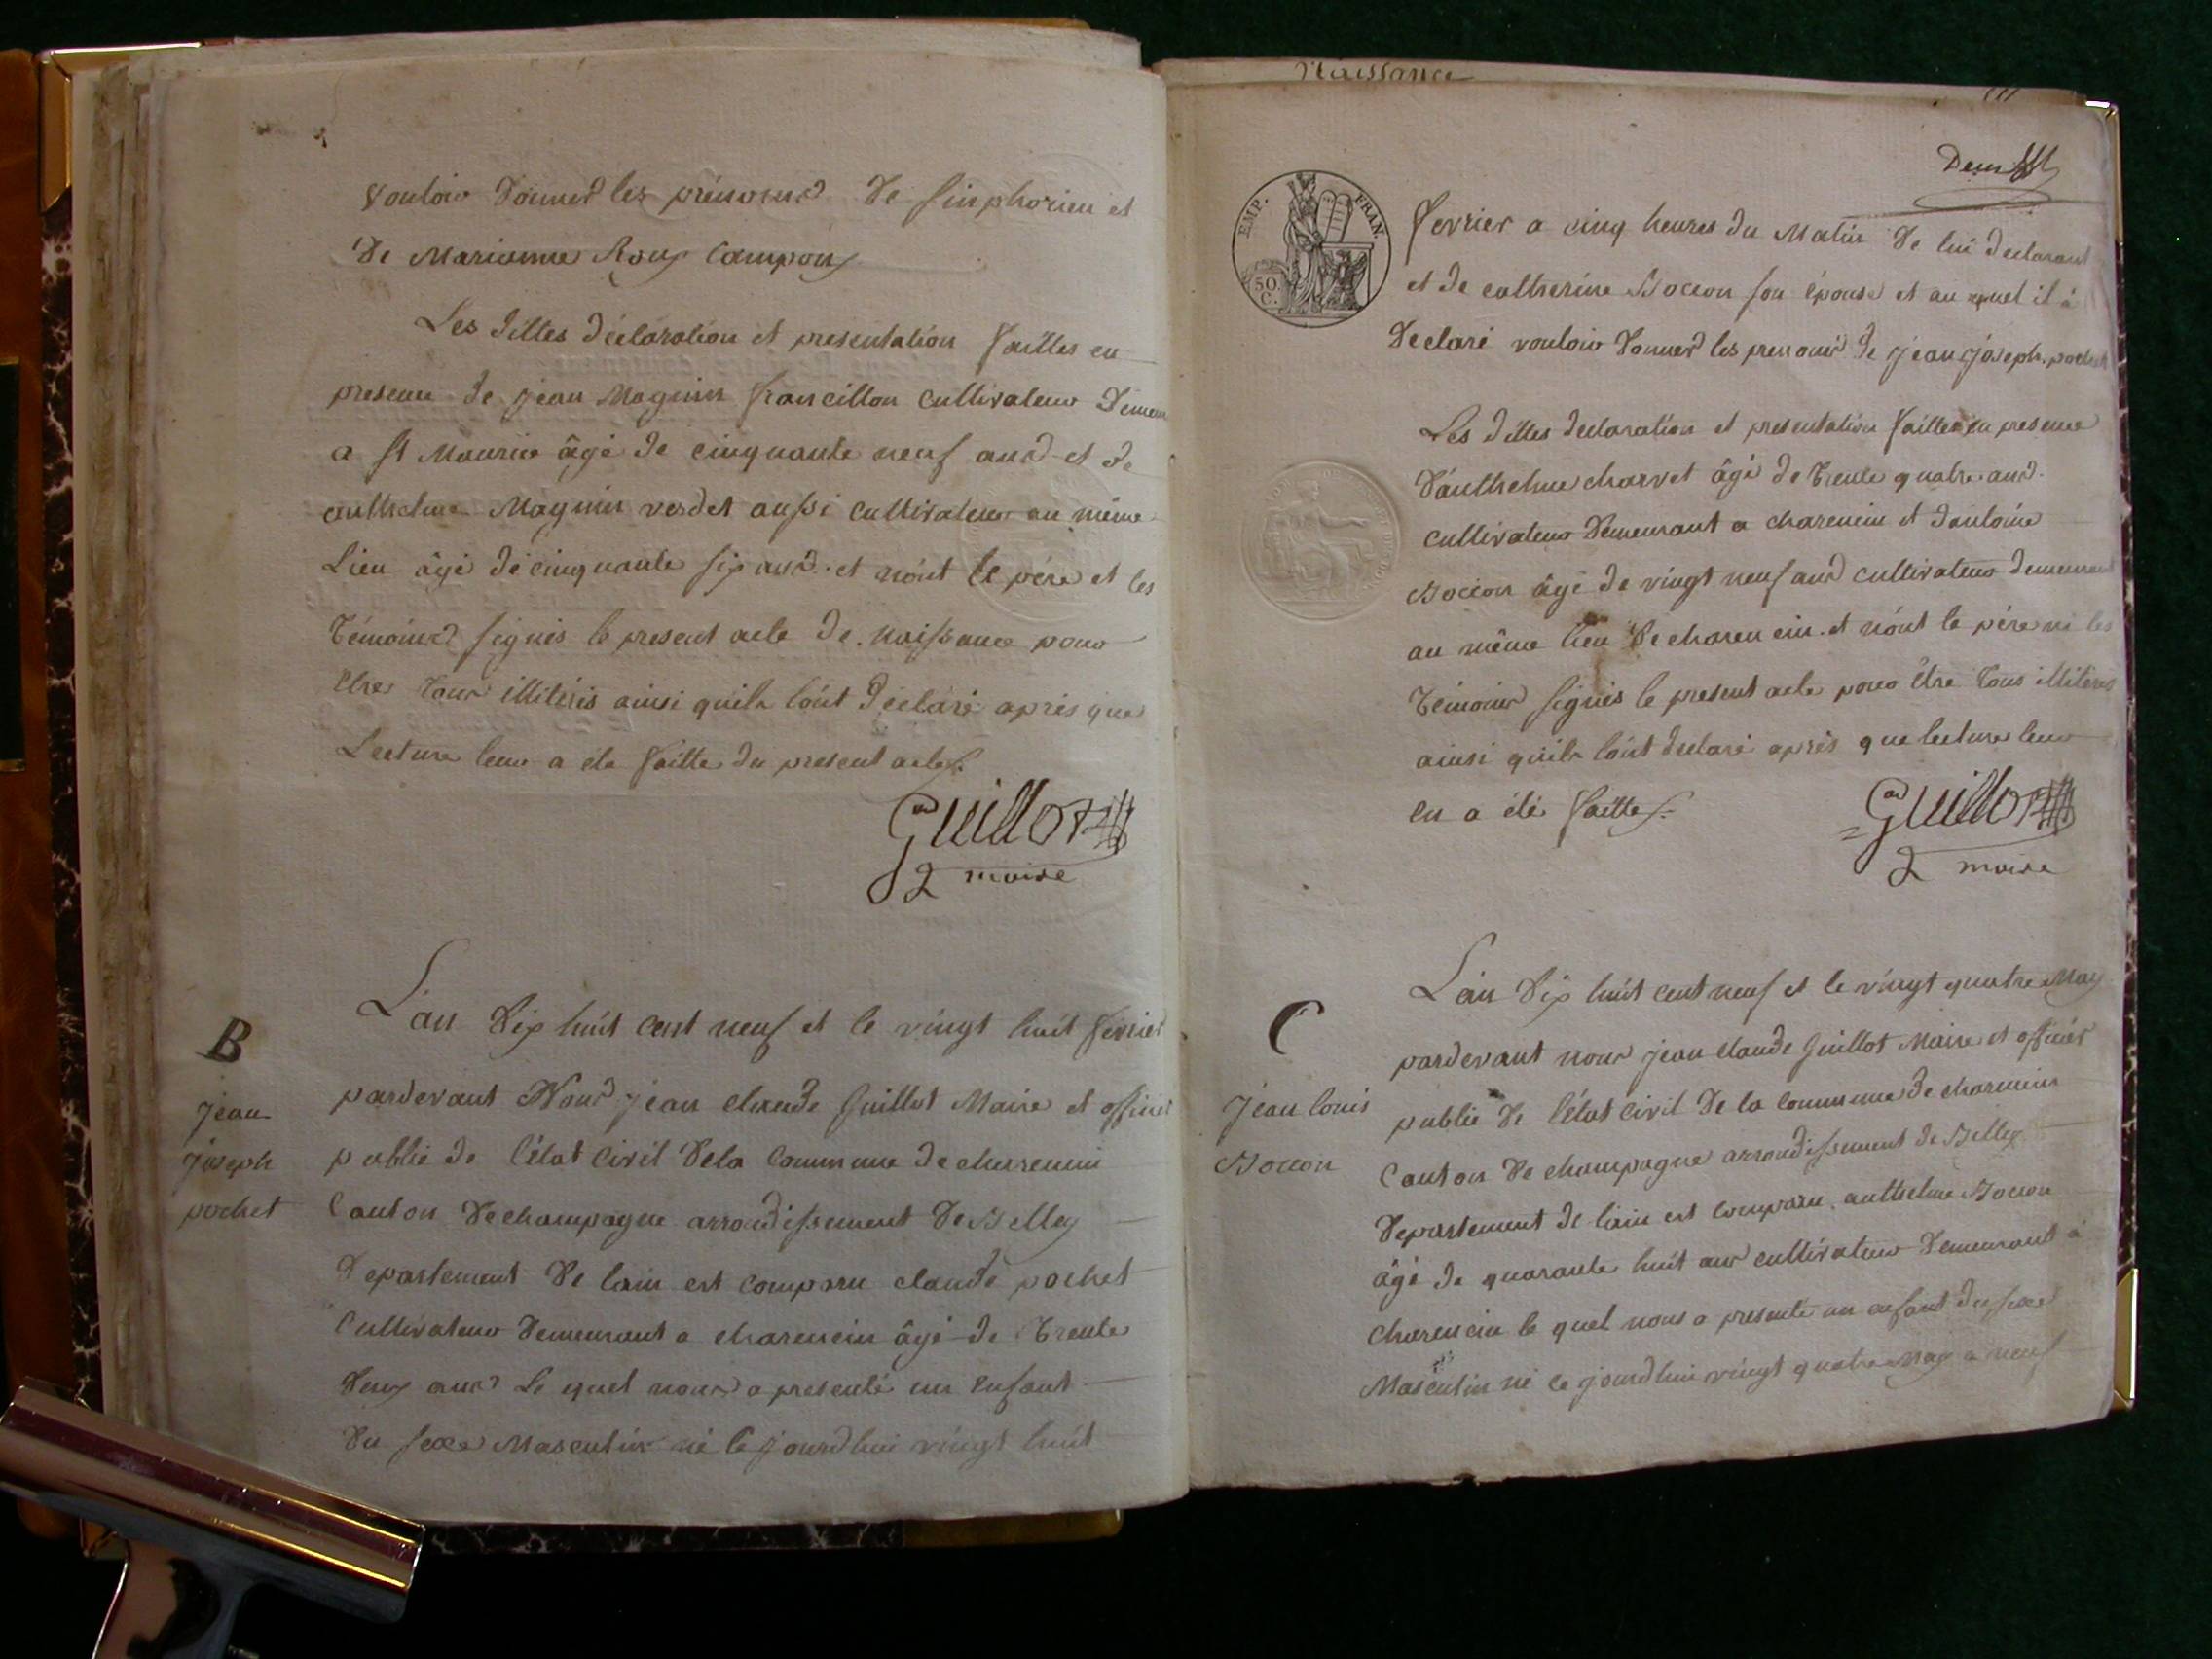 vouloir donner les prénoms de Sinphorien et
de Marianne Roux Campon
Les dittes déclaration et presentation faittes en
presence de jean Magnin francillon cultivateur
a St Maurice âgé de cinquante neuf ans et de
anthelme Magnin verdet aussi cultivateur au même
Lieu âgé de cinquante six ans et n'ont le père et les
témoins signés le present acte de naissance pour
être tous illiteris ainsi quils l'ont déclaré après que
Lecture leur a éte faitte du present acte
Guillot
maire
B
jean
joseph
pochet
L'an dix huit cent neuf et le vingt huit fevrier
pardevant Nous jean claude Guillot Maire et officier
public de l'état civil de la Commune de charencin
Canton de champagne arrondissement de Belley
Departement de lain est comparu claude pochet
Cultivateur demeurant a charencin âgé de trente
deux ans Le quel nous a presenté un enfant
du sexe Masculin né le jourdhui vingt huit
Naissance
EMP. FRAN.
50. C.
fevrier a cinq heures du Matin de lui declarant
et de catherine Bocion son épouse et au quel il à
declaré vouloir donner les prenoms de jean joseph pochet
Les dittes declaration et presentation faittes en presence
d'anthelme charvet âgé de trente quatre ans
cultivateur demeurant a charencin et dantoine
Bocion âgé de vingt neuf ans cultivateur demeurant
au même lieu de charencin et n'ont le père ni les
témoins signés le present acte pour être tous illiteris
ainsi quils l'ont declaré après que lecture leur
en a été faitte
Guillot
maire
C
jean louis
Bocion
L'an dix huit cent neuf et le vingt quatre May
pardevant nous jean claude Guillot Maire et officier
public de l'état civil de la commune de charencin
Canton de champagne arrondissement de Belley
Departement de lain est comparu anthelme Bocion
âgé de quarante huit ans cultivateur demeurant à
charencin le quel nous a presenté un enfant du sexe
Masculin né le jourdhui vingt quatre May a neuf